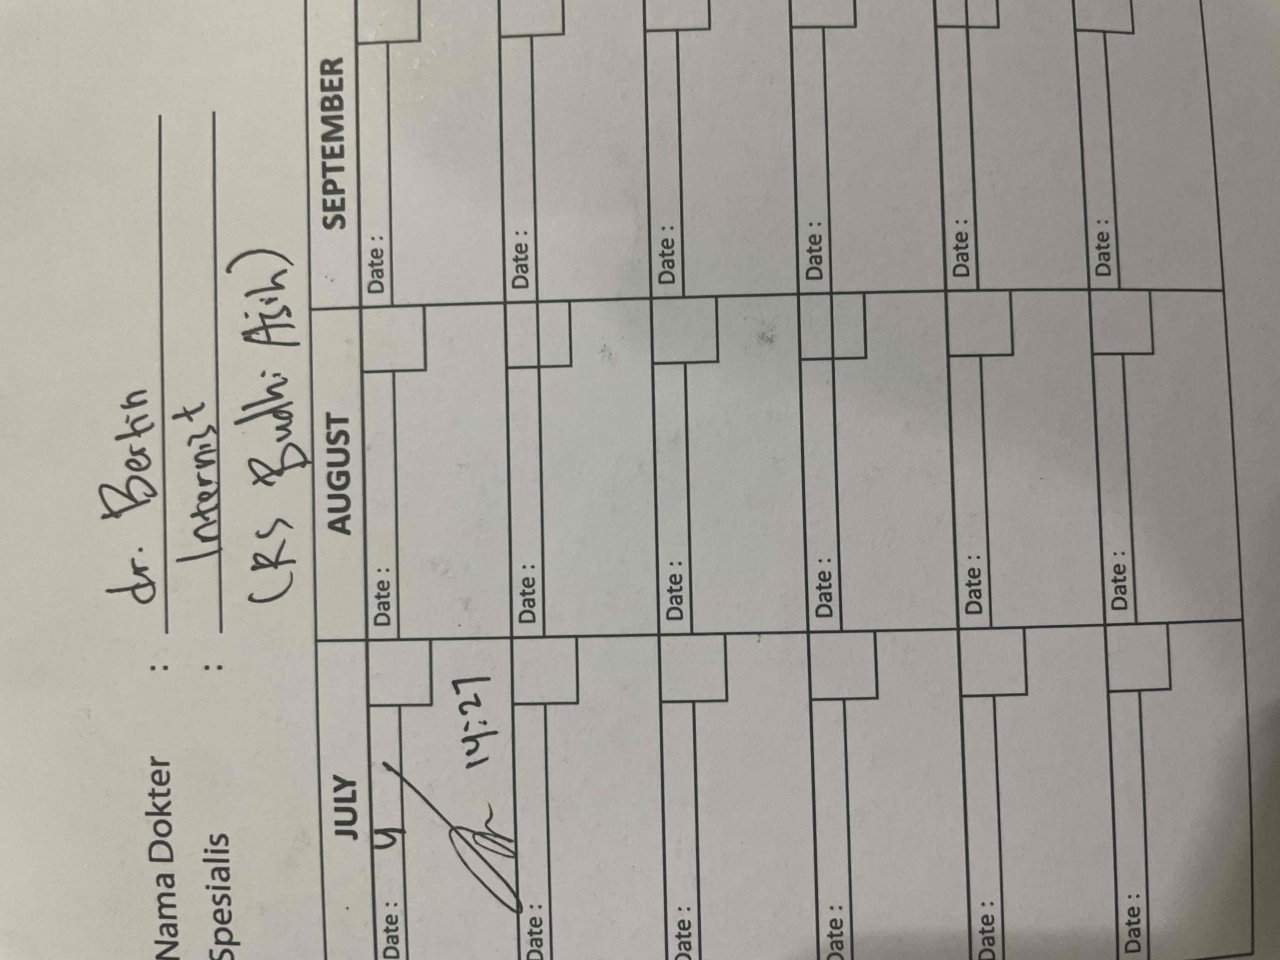 Nama Dokter : dr. Bertin
Spesialis : Internist
(RS Budhi Asih)
JULY AUGUST SEPTEMBER
Date : 4 Date : Date :
14:27
Date : Date : Date :
Date : Date : Date :
Date : Date : Date :
Date : Date : Date :
Date : Date : Date :